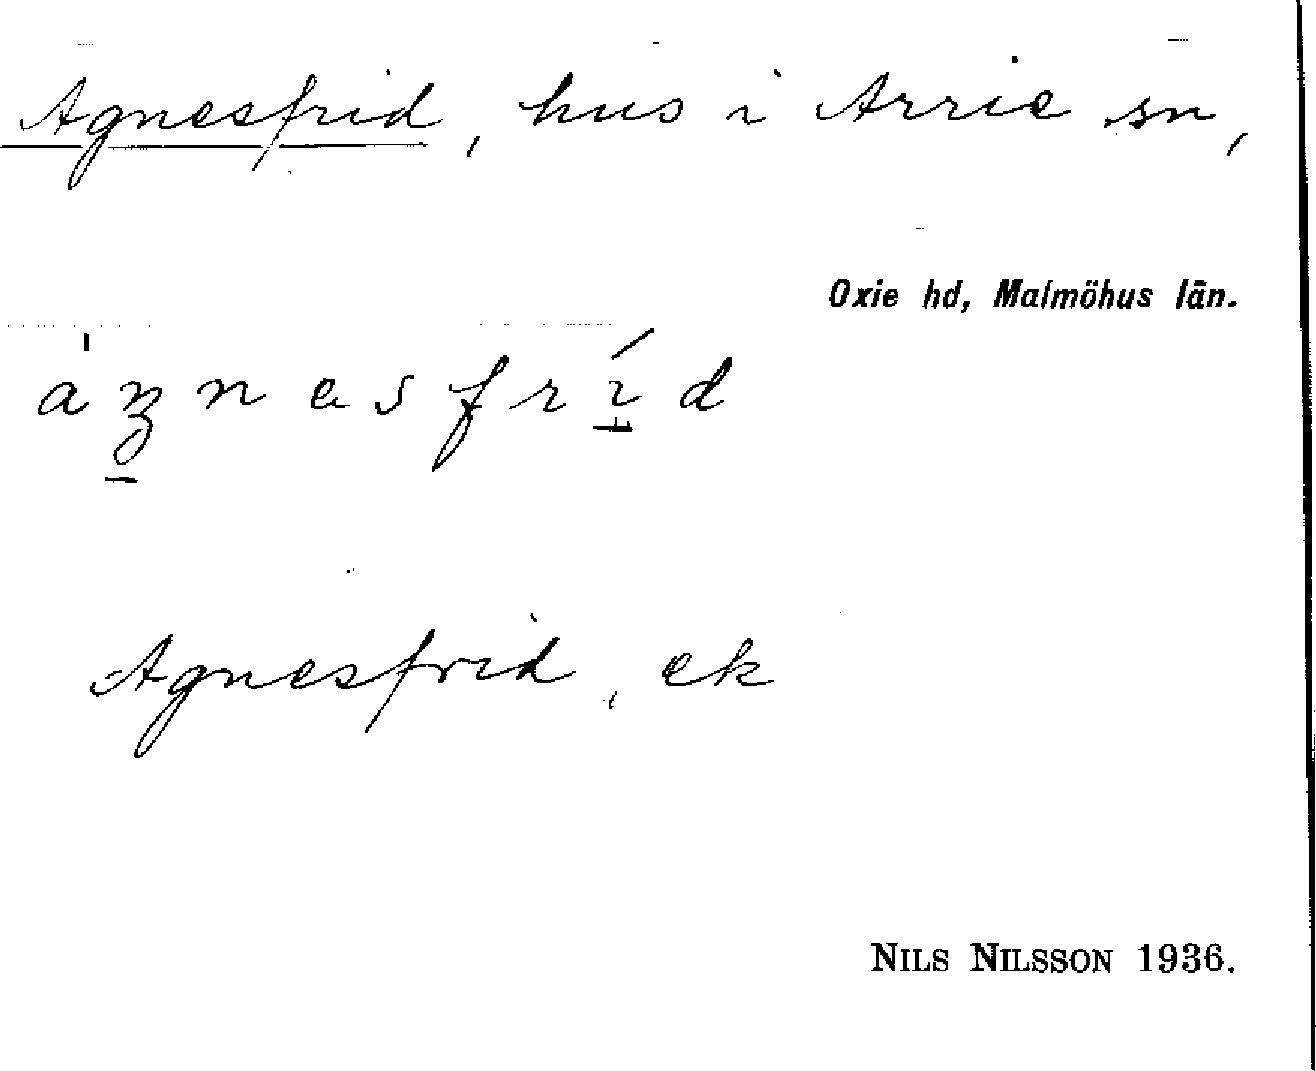 Agnesfrid, hus i Arrie sn,
Oxie hd, Malmöhus län.
Agnesfrid, ek
NILS NILSSON 1936.